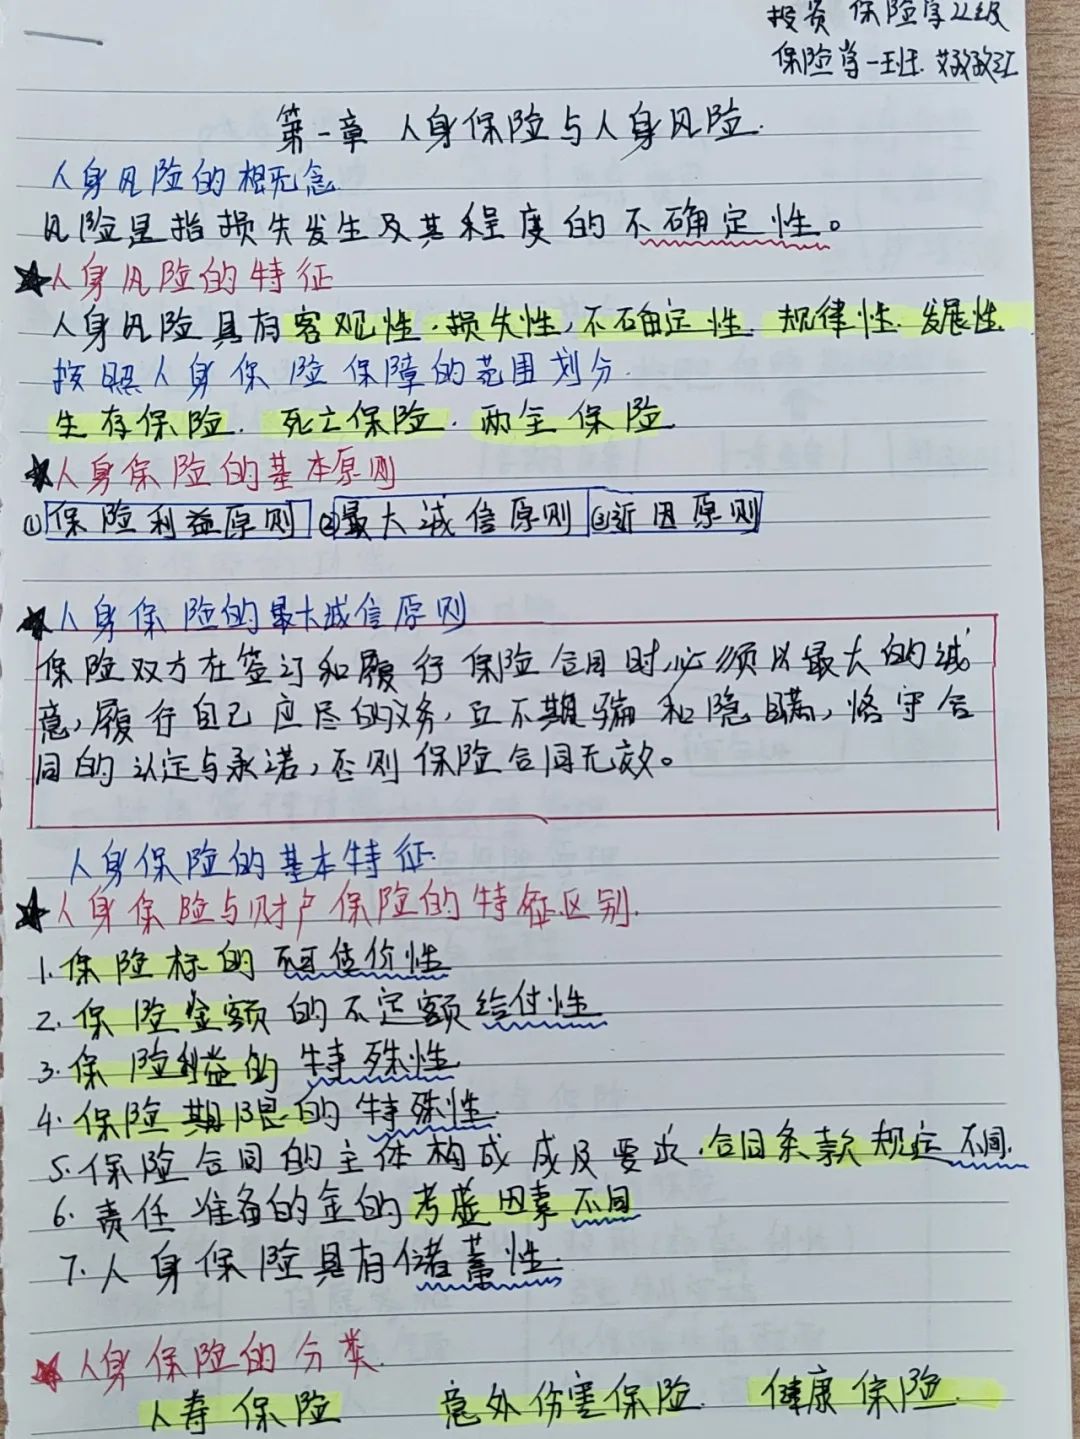 投资 保险学22级
保险学一班
第一章 人身保险与人身风险.
人身风险的概念.
风险是指损失发生及其程度的不确定性。
★人身风险的特征
人身风险具有客观性.损失性,不确定性.规律性.发展性.
按照人身保险保障的范围划分.
生存保险.死亡保险.两全保险
★人身保险的基本原则
①保险利益原则 ②最大诚信原则 ③近因原则
★人身保险的最大诚信原则
保险双方在签订和履行保险合同时,必须以最大的诚
意,履行自己应尽的义务,互不欺骗和隐瞒,恪守合
同的认定与承诺,否则保险合同无效。
人身保险的基本特征.
★人身保险与财产保险的特征区别.
1.保险标的不可估价性
2.保险金额的不定额给付性
3.保险利益的特殊性
4.保险期限的特殊性.
5.保险合同的主体构成成及要求.合同条款规定不同.
6.责任准备的金的考虑因素不同
7.人身保险具有储蓄性.
★人身保险的分类.
人寿保险 意外伤害保险. 健康保险.